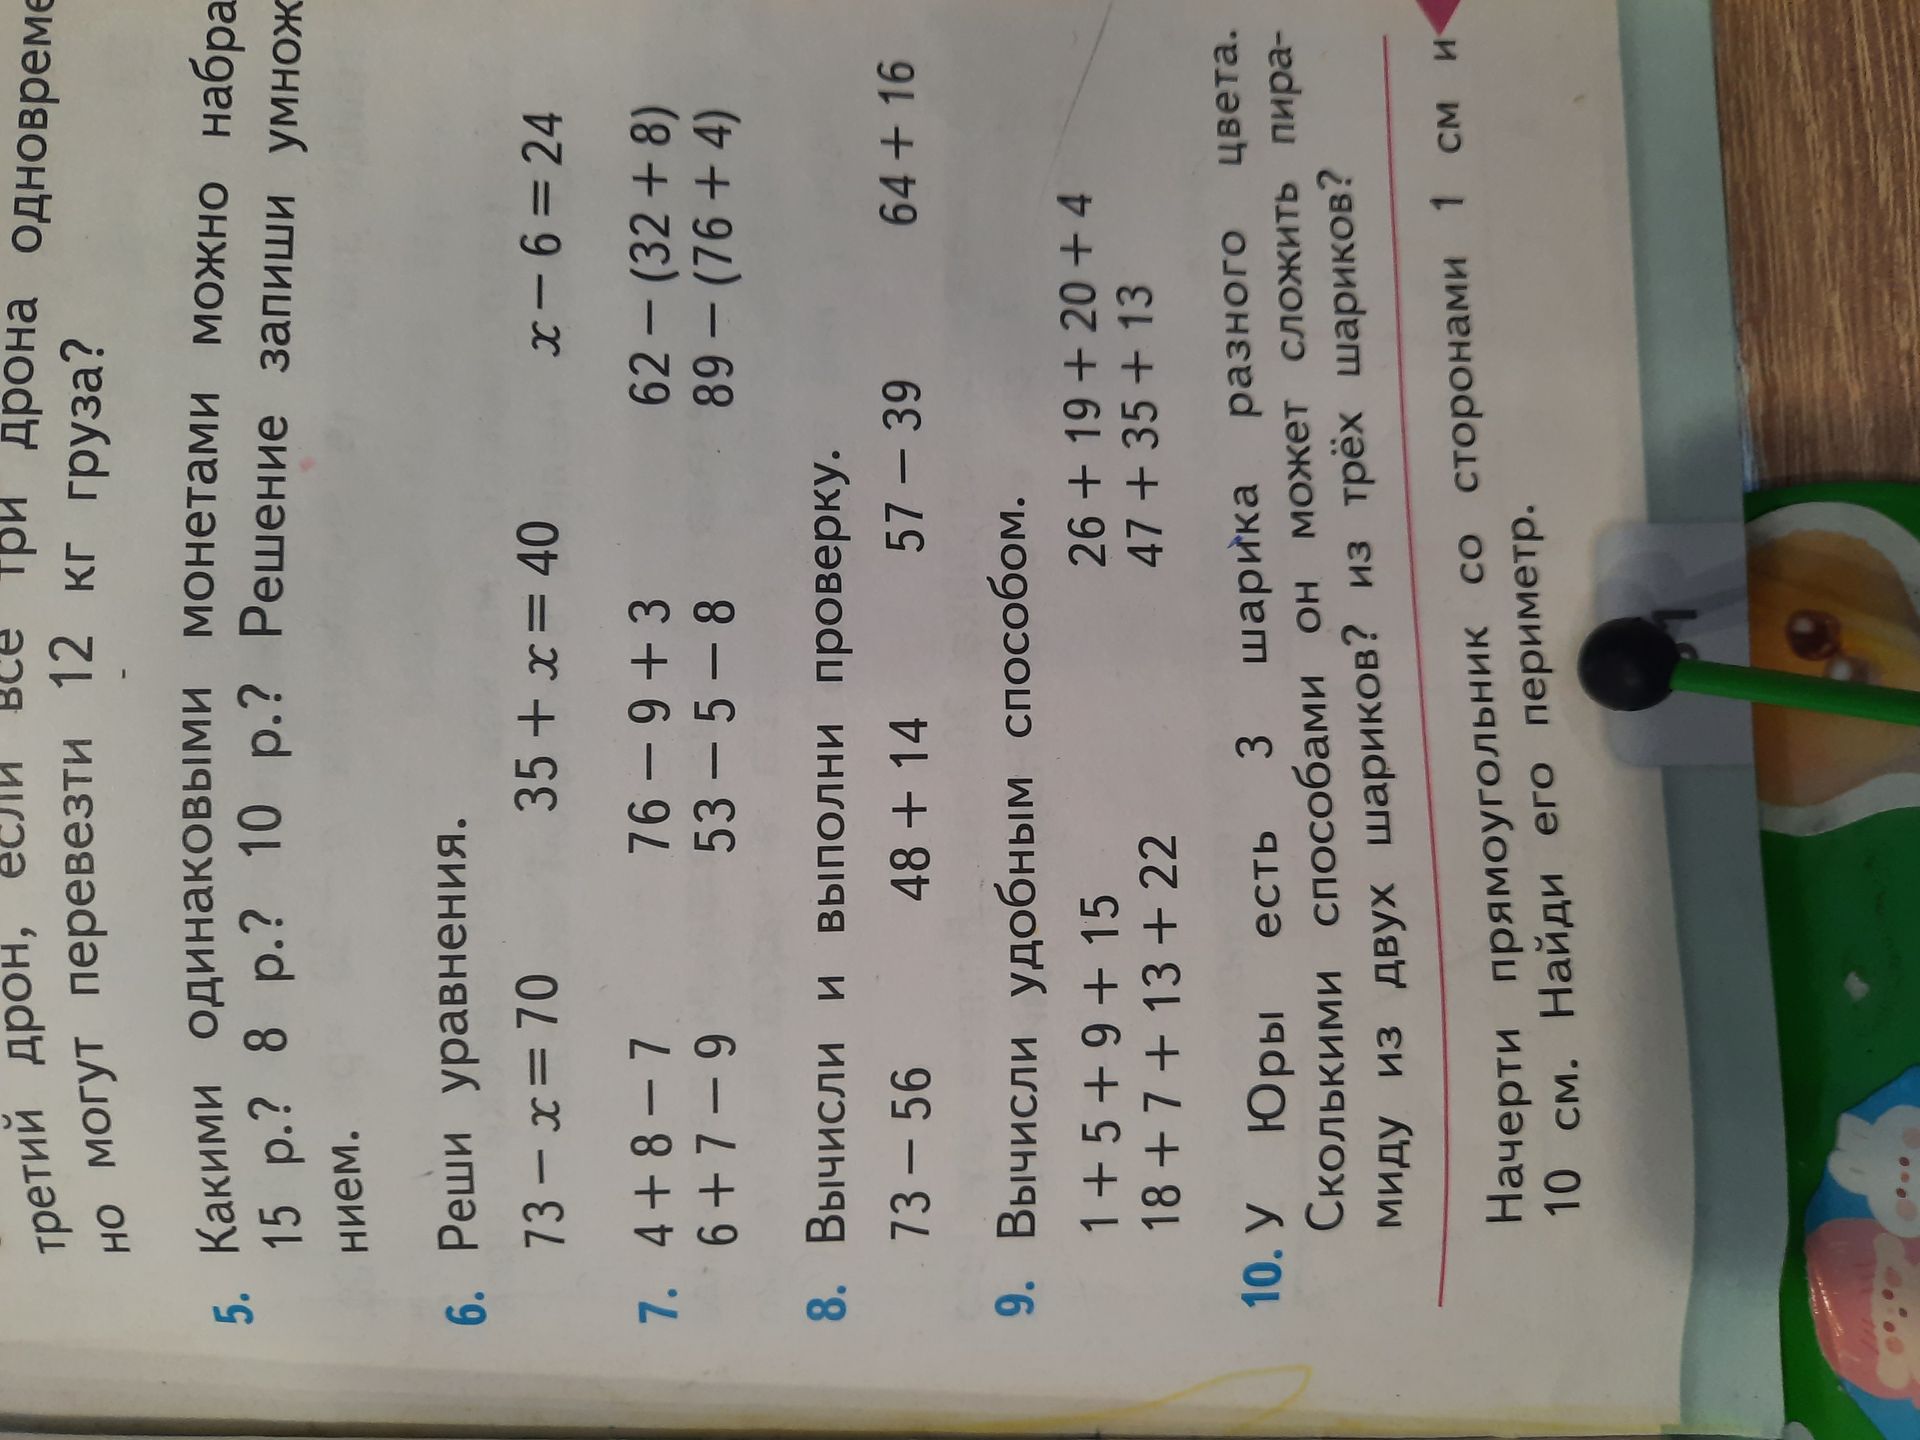 третий дрон, если все три дрона
но могут перевезти 12 кг груза?
5. Какими одинаковыми монетами можно
15 р.? 8 р.? 10 р.? Решение запиши
нием.
6. Реши уравнения.
73 − x = 70 35 + x = 40 x − 6 = 24
7. 4 + 8 − 7 76 − 9 + 3 62 − (32 + 8)
6 + 7 − 9 53 − 5 − 8 89 − (76 + 4)
8. Вычисли и выполни проверку.
73 − 56 48 + 14 57 − 39 64 + 16
9. Вычисли удобным способом.
1 + 5 + 9 + 15 26 + 19 + 20 + 4
18 + 7 + 13 + 22 47 + 35 + 13
10. У Юры есть 3 шарика разного цвета.
Сколькими способами он может сложить пира-
миду из двух шариков? из трёх шариков?
Начерти прямоугольник со сторонами 1 см и
10 см. Найди его периметр.